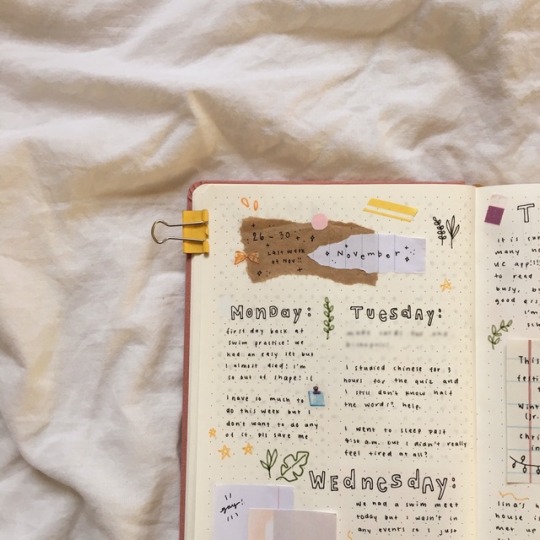 26 - 30
last week
of Nov!!
November
Monday:
first day back at
swim practice! we
had an easy set but
I almost died! I'm
so out of shape! :(
I have so much to
do this week but I
don't want to do any
of it. pls save me
Tuesday:
I studied chinese for 3
hours for the quiz and
I still don't know half
the words? help.
I went to sleep past
a.m. but I didn't really
feel tired at all?
Wednesday:
we had a swim meet
today but I wasn't in
any events so I just
yay!
T
it is
many
to read
busy,
good
I'm
This
festi
Wint
(Jr.
chri
lina's
house
met up